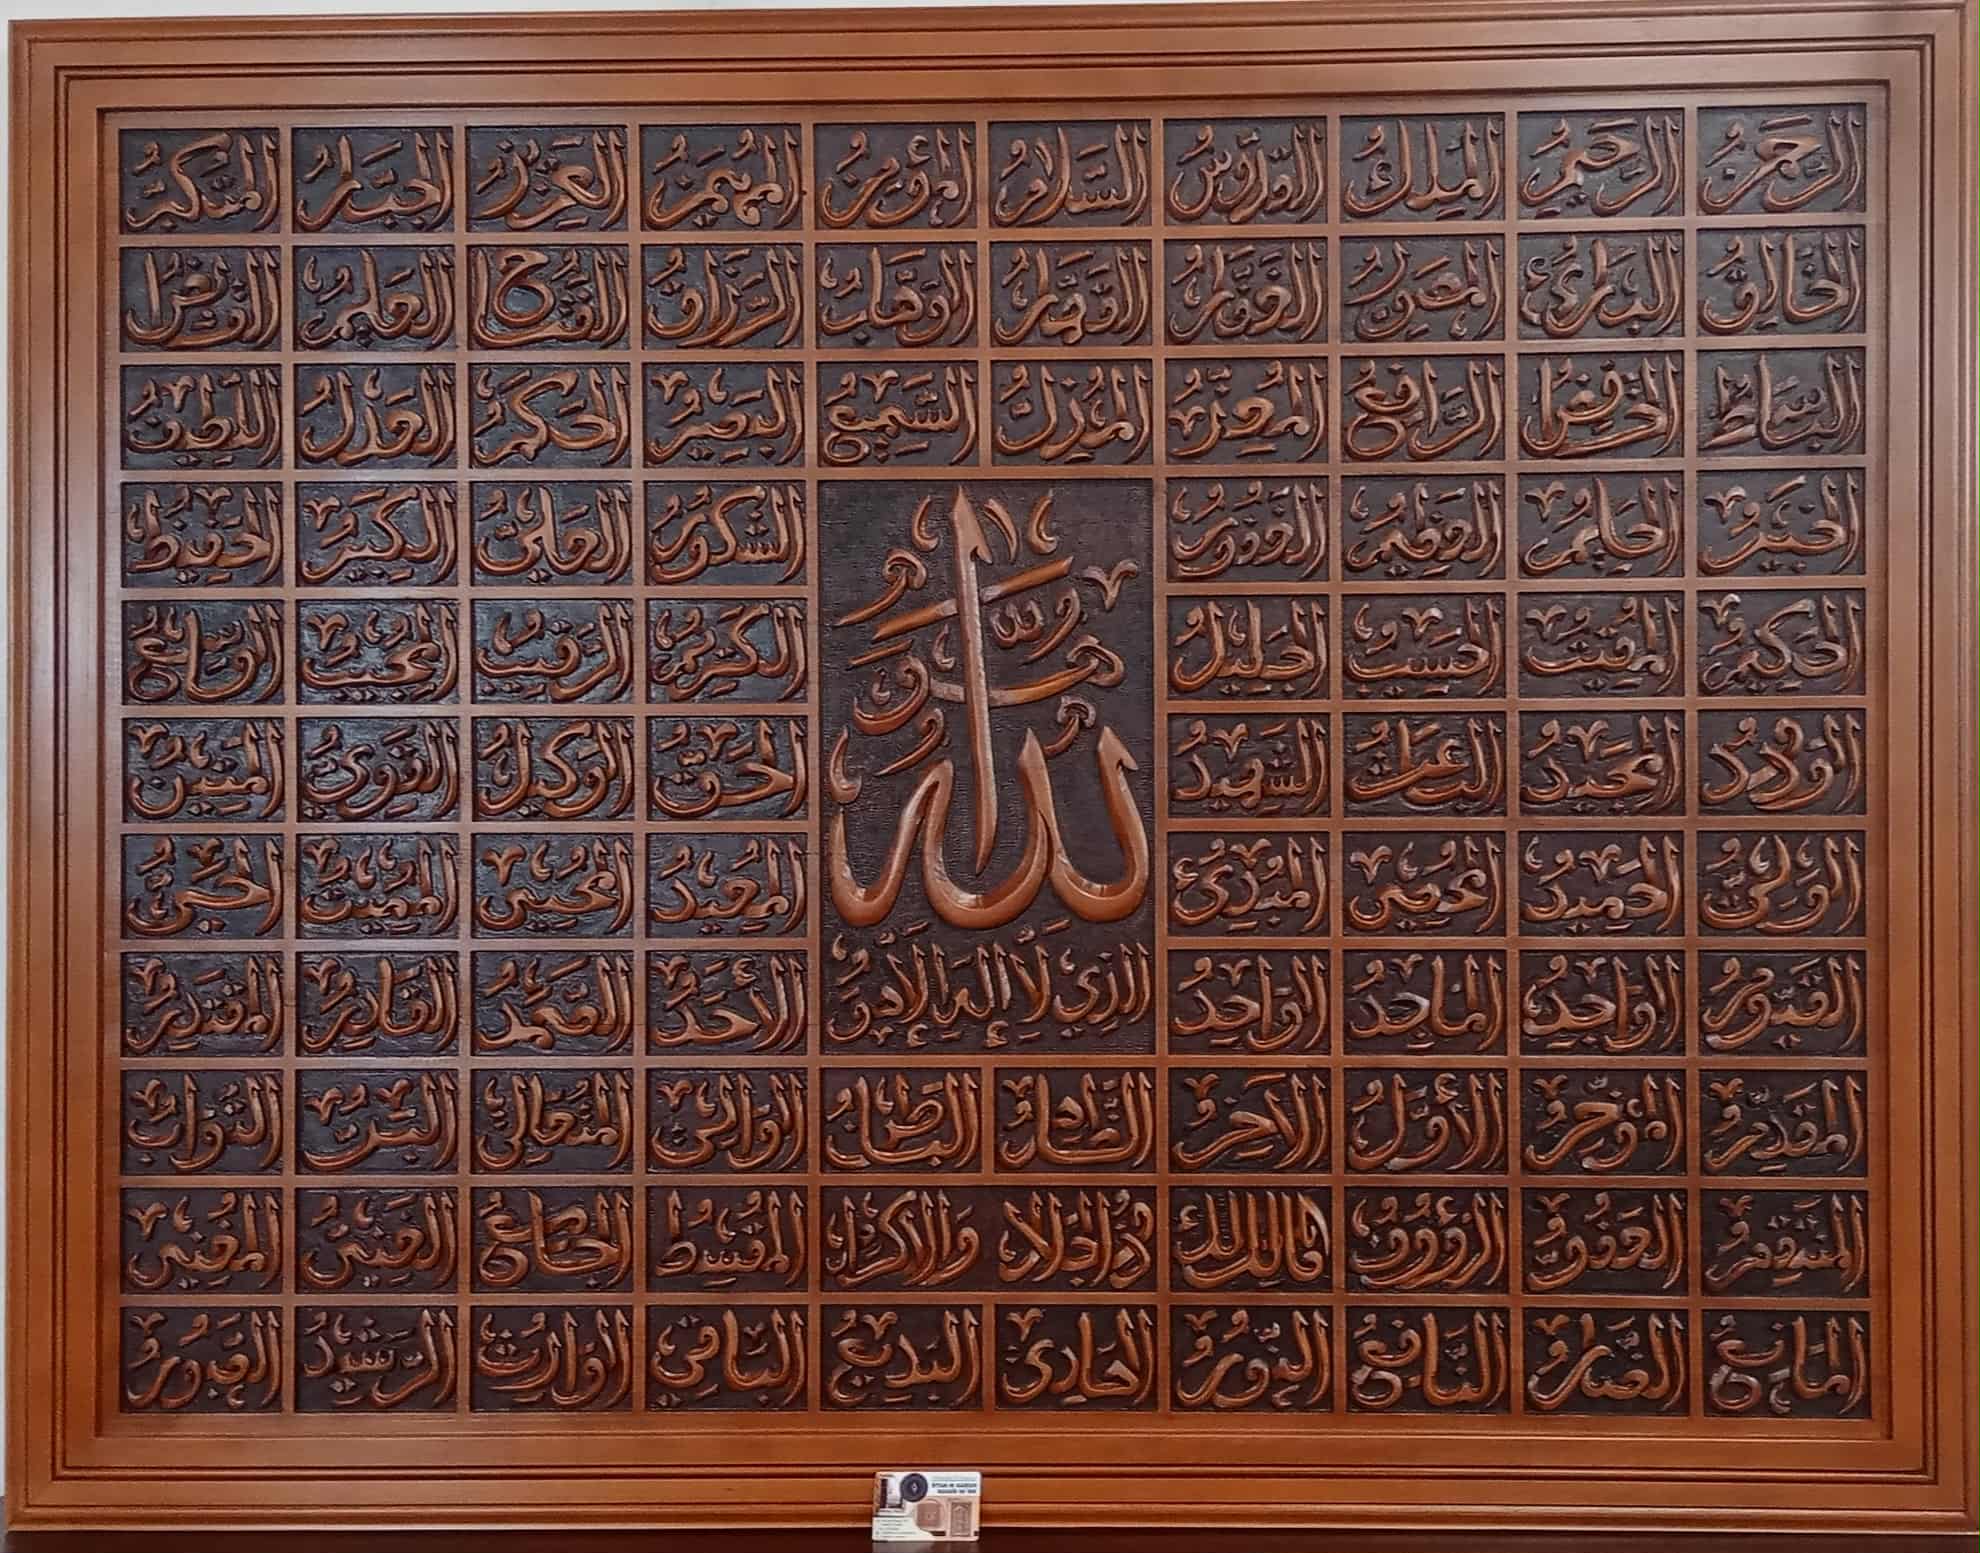 الرحمن الرحيم الملك القدوس السلام المؤمن المهيمن العزيز الجبار المتكبر
الخالق البارئ المصور الغفار القهار الوهاب الرزاق الفتاح العليم القابض
الباسط الخافض الرافع المعز المذل السميع البصير الحكم العدل اللطيف
الخبير الحليم العظيم الغفور الشكور العلي الكبير الحفيظ
هو الله
المقيت الحسيب الجليل الكريم الرقيب المجيب الواسع
الحكيم
الودود المجيد الباعث الشهيد الحق الوكيل القوي المتين
الولي الحميد المحصي المبدئ المعيد المحيي المميت الحي
القيوم الواجد الماجد الواحد الأحد الصمد القادر المقتدر
الذي لا إله إلا هو
المقدم المؤخر الأول الآخر الظاهر الباطن الوالي المتعالي البر التواب
المنتقم العفو الرؤوف مالك الملك ذو الجلال والإكرام المقسط الجامع الغني المغني
المانع الضار النافع النور الهادي البديع الباقي الوارث الرشيد الصبور